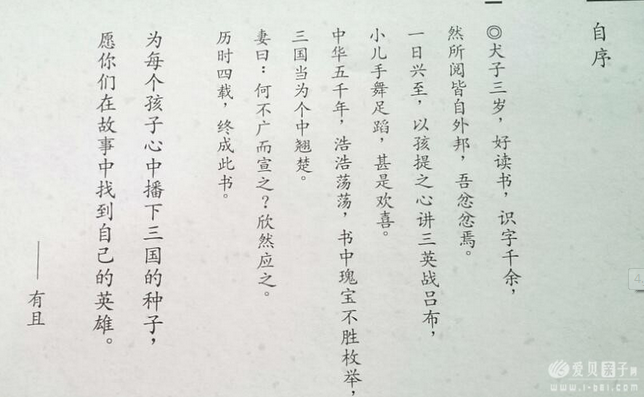 自序
◎犬子三岁，好读书，识字千余，
然所阅皆自外邦，吾忿忿焉。
一日兴至，以孩提之心讲三英战吕布，
小儿手舞足蹈，甚是欢喜。
中华五千年，浩浩荡荡，书中瑰宝不胜枚举，
三国当为个中翘楚。
妻曰：何不广而宣之？欣然应之。
历时四载，终成此书。
为每个孩子心中播下三国的种子，
愿你们在故事中找到自己的英雄。
——有且
4
爱贝亲子网
www.i-bei.com